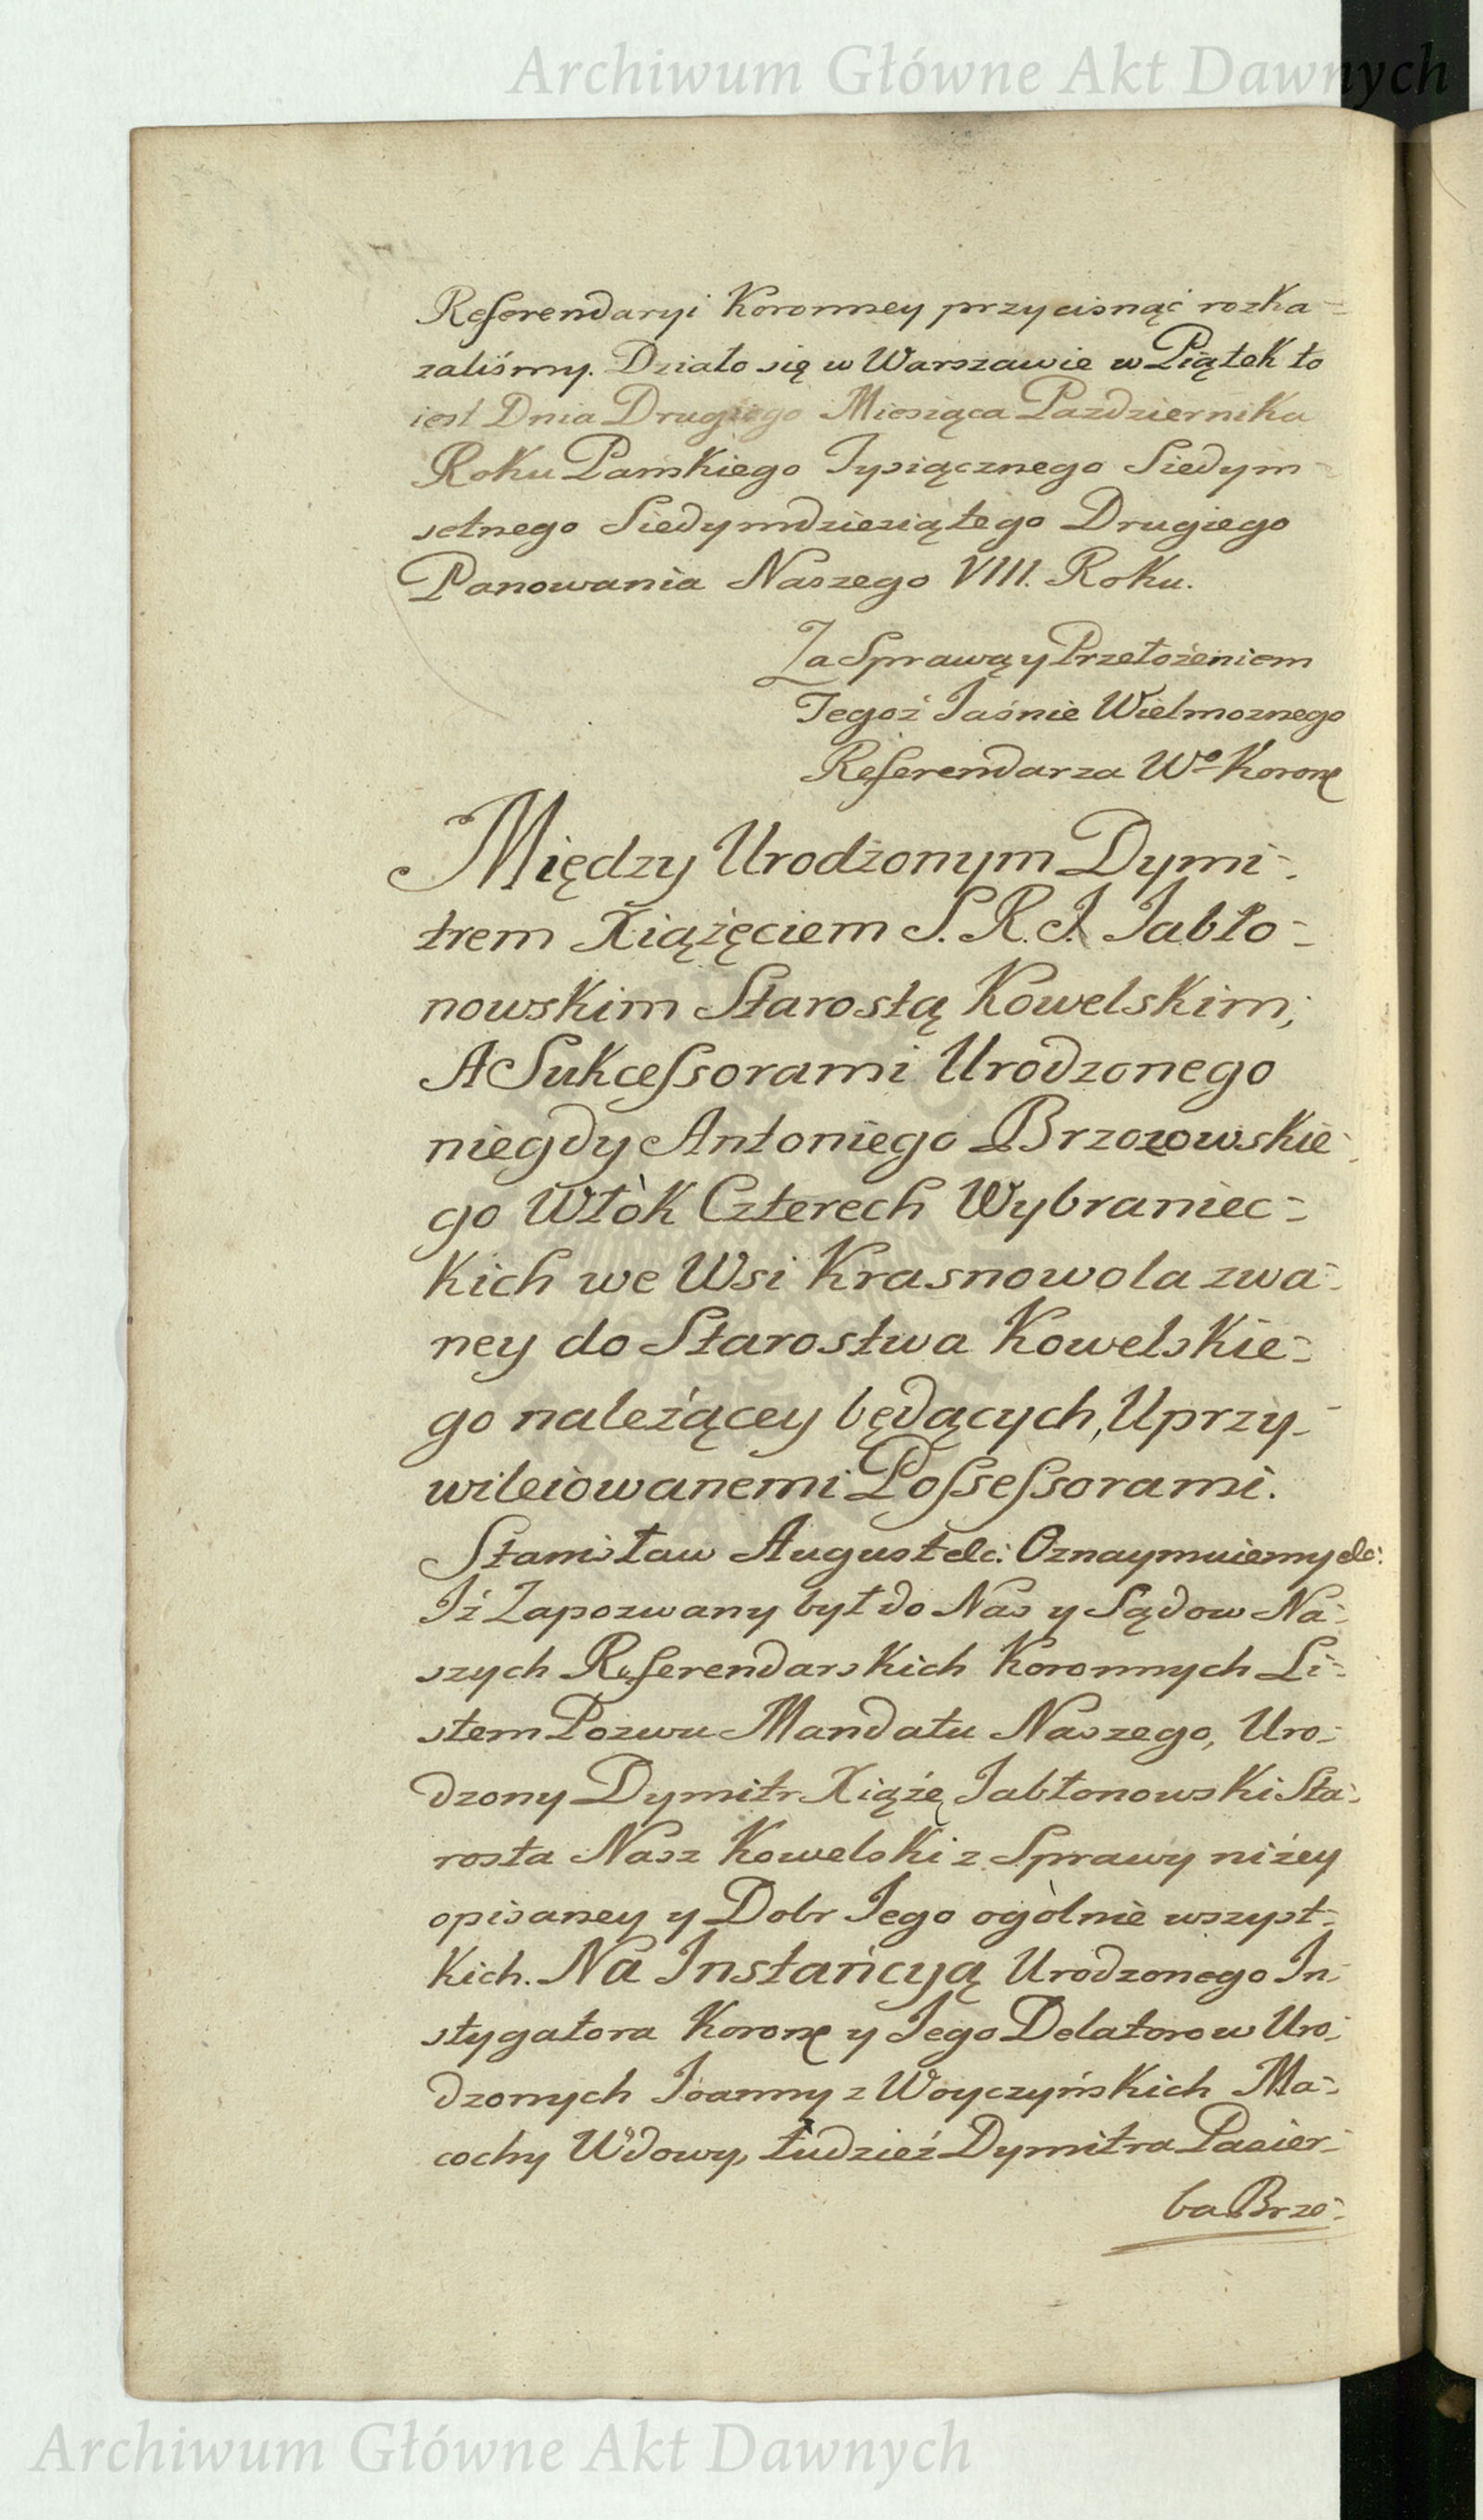 Archiwum Główne Akt Dawnych
Referendaryi Koronney przycisnąć rozka-
zaliśmy. Działo się w Warszawie w Piątek to
iest Dnia Drugiego Miesiąca Pazdziernika
Roku Panskiego Tysiącznego Siedym-
setnego Siedymdziesiątego Drugiego
Panowania Naszego VIII. Roku.
Za Sprawą y Przełożeniem
Tegoż Jaśnie Wielmoznego
Referendarza Wo Koron
Między Urodzonym Dymi-
trem Xiążęciem S. R. J. Jabło-
nowskim Starostą Kowelskim;
A Sukcessorami Urodzonego
niegdy Antoniego Brzozowskie-
go Włòk Czterech Wybraniec-
kich we Wsi Krasnowola zwa-
ney do Starostwa Kowelskie-
go należącey będących, Uprzy-
wileiowanemi Possessorami.
Stanisław August etc: Oznaymuiemy etc:
Iż Zapozwany był do Nas y Sądow Na-
szych Referendarskich Koronnych Li-
stem Pozwu Mandatu Naszego, Uro-
dzony Dymitr Xiąże Jabłonowski Sta-
rosta Nasz Kowelski z Sprawy niżey
opisaney y Dobr Jego ogòlnie wszyst-
kich. Na Instańcyą Urodzonego In-
stygatora Koron y Jego Delatorow Uro-
dzonych Joanny z Woyczyńskich Ma-
cochy Wdowy, tudzież Dymitra Pasier-
ba Brzo-
Archiwum Główne Akt Dawnych